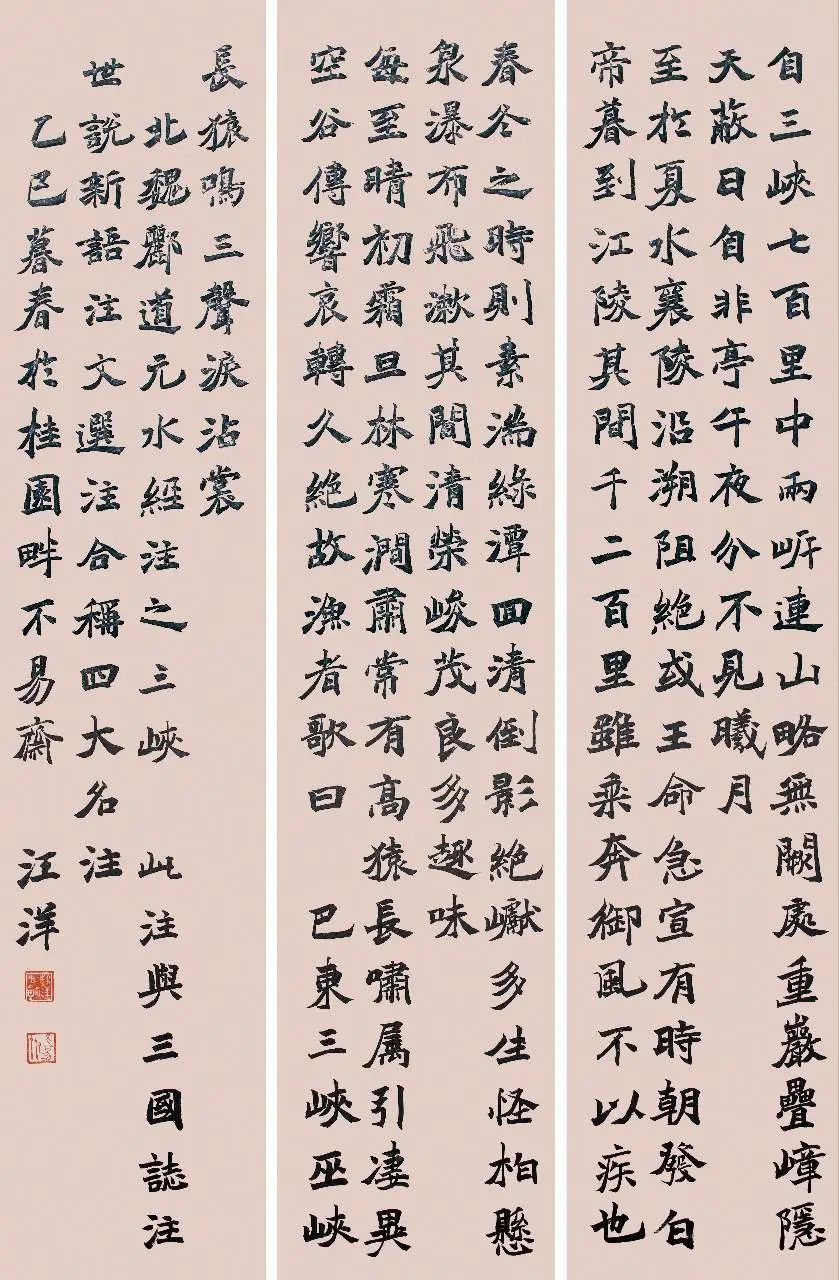 自三峽七百里中兩岸連山略無闕處重巖疊嶂隱
天蔽日自非亭午夜分不見曦月
至於夏水襄陵沿溯阻絶或王命急宣有時朝發白
帝暮到江陵其間千二百里雖乘奔御風不以疾也
春冬之時則素湍綠潭回清倒影絶巘多生怪柏懸
泉瀑布飛漱其間清榮峻茂良多趣味
每至晴初霜旦林寒澗肅常有高猿長嘯属引凄異
空谷傳響哀轉久絶故漁者歌曰 巴東三峽巫峽
長猿鳴三聲淚沾裳
北魏酈道元水經注之三峽 此注與三國誌注
世說新語注文選注合稱四大名注
乙巳暮春於桂園畔不易齋 汪洋